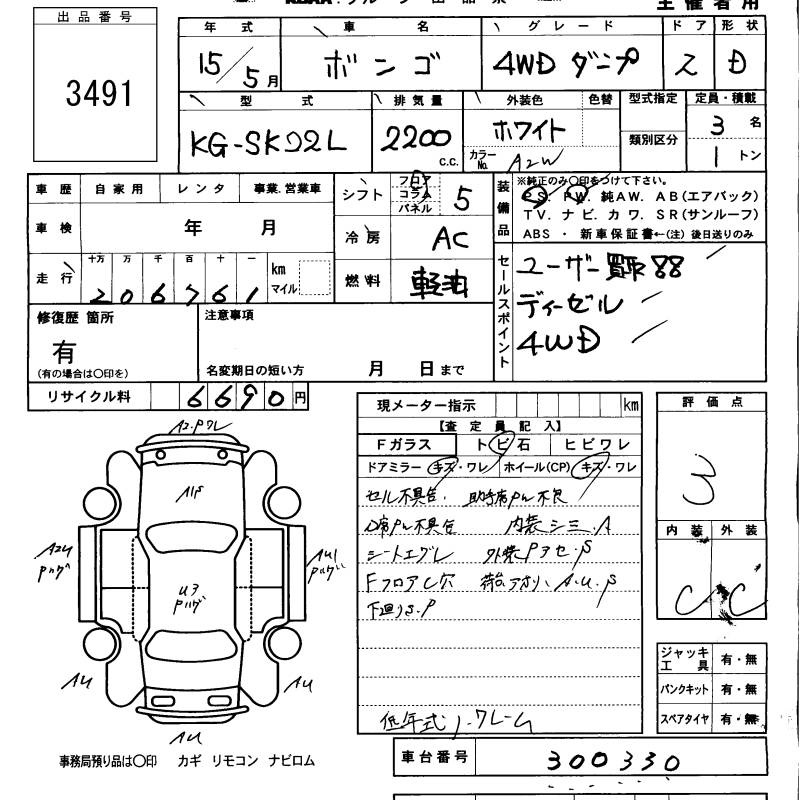 主催者用
出品番号
3491
年式 車名 グレード ドア 形状
15/5月 ボンゴ 4WD ダンプ 2 D
型式 排気量 外装色 色替 型式指定 定員・積載
KG-SK22L 2200 c.c. ホワイト 類別区分 3名
カラーNo. A2W 1トン
車歴 自家用 レンタ 事業.営業車
シフト フロア コラム パネル 5
装備品 ※純正のみ〇印をつけて下さい。
PS. PW. 純AW. AB(エアバッグ)
TV. ナビ. カワ. SR(サンルーフ)
ABS ・ 新車保証書←(注) 後日送りのみ
車検 年 月
冷房 AC
走行 十万 万 千 百 十 一 km マイル
206761
燃料 軽油
セールスポイント
ユーザー買取
ディーゼル
4WD
修復歴 箇所
有
(有の場合は〇印を)
注意事項
名変期日の短い方 月 日まで
リサイクル料 6690円
現メーター指示 km
【査定員記入】
Fガラス トビ石 ヒビワレ
ドアミラー キズ・ワレ ホイール(CP) キズ・ワレ
セル不具合. 助手席PW不良
D席PW不具合 内装シミ.A
シートエグレ
Fフロアし穴
下廻りS.P
低年式ノークレーム
評価点
3
内装 外装
C C
ジャッキ工具 有・無
パンクキット 有・無
スペアタイヤ 有・無
A2.Pワレ
A1P
A2U
Pハゲ
U3
Pハゲ
AU1
Pハゲ
AU
AU
AU
事務局預り品は〇印 カギ リモコン ナビロム
車台番号 300330